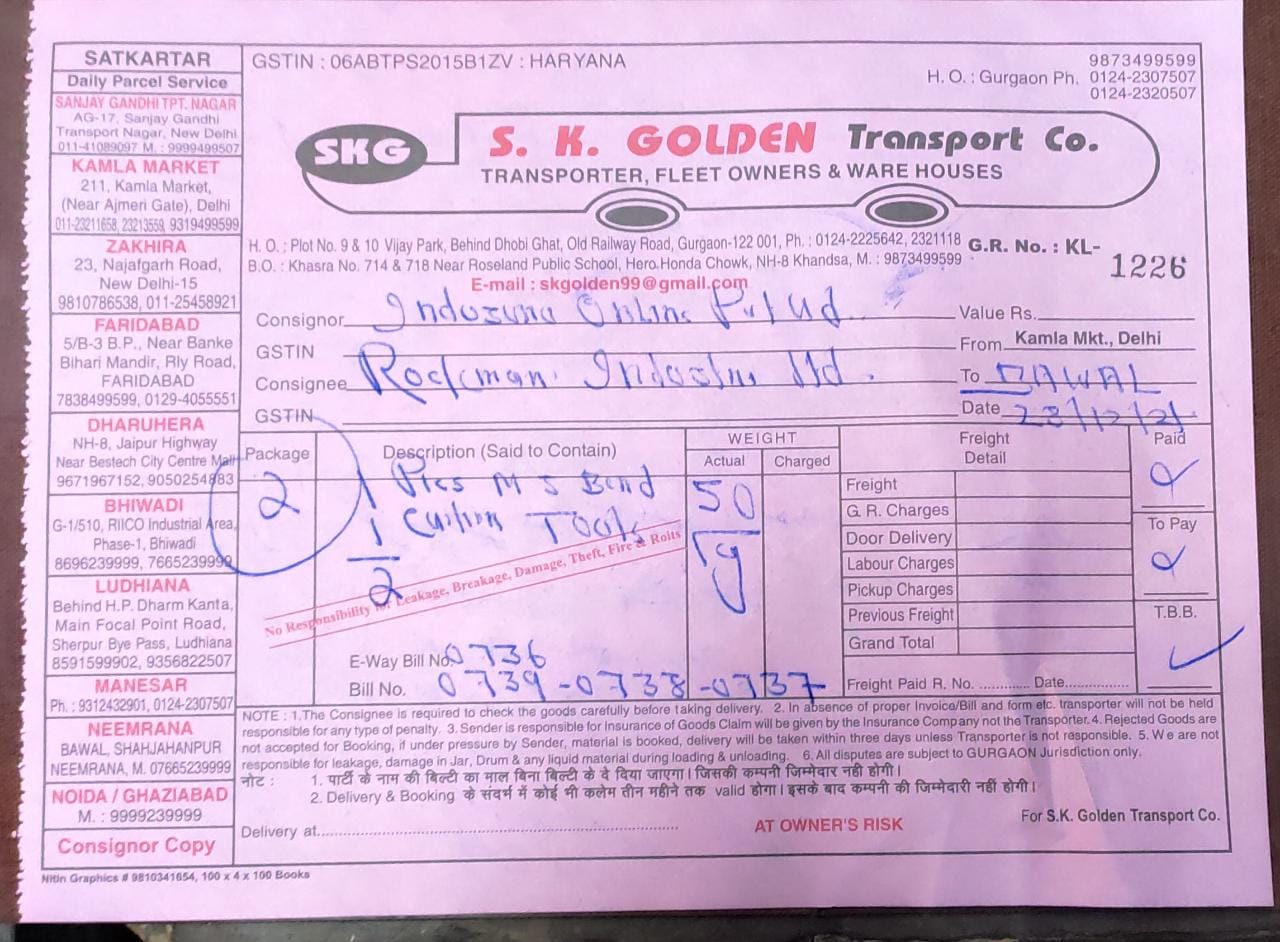 SATKARTAR
Daily Parcel Service
SANJAY GANDHI TPT. NAGAR
AG-17, Sanjay Gandhi
Transport Nagar, New Delhi
011-41089097 M. : 9999499507
KAMLA MARKET
211, Kamla Market,
(Near Ajmeri Gate), Delhi
011-23211658, 23213559, 9319499599
ZAKHIRA
23, Najafgarh Road,
New Delhi-15
9810786538, 011-25458921
FARIDABAD
5/B-3 B.P., Near Banke
Bihari Mandir, Rly Road,
FARIDABAD
7838499599, 0129-4055551
DHARUHERA
NH-8, Jaipur Highway
Near Bestech City Centre Mall
9671967152, 9050254883
BHIWADI
G-1/510, RIICO Industrial Area,
Phase-1, Bhiwadi
8696239999, 7665239999
LUDHIANA
Behind H.P. Dharm Kanta,
Main Focal Point Road,
Sherpur Bye Pass, Ludhiana
8591599902, 9356822507
MANESAR
Ph. : 9312432901, 0124-2307507
NEEMRANA
BAWAL, SHAHJAHANPUR
NEEMRANA, M. 07665239999
NOIDA / GHAZIABAD
M. : 9999239999
Consignor Copy
GSTIN : 06ABTPS2015B1ZV : HARYANA
9873499599
H. O. : Gurgaon Ph. 0124-2307507
0124-2320507
SKG
S. K. GOLDEN Transport Co.
TRANSPORTER, FLEET OWNERS & WARE HOUSES
H. O. : Plot No. 9 & 10 Vijay Park, Behind Dhobi Ghat, Old Railway Road, Gurgaon-122 001, Ph. : 0124-2225642, 2321118
B.O. : Khasra No. 714 & 718 Near Roseland Public School, Hero Honda Chowk, NH-8 Khandsa, M. : 9873499599
G.R. No. : KL- 1226
E-mail : skgolden99@gmail.com
Consignor Online Pvt Ltd
Value Rs.
GSTIN
From Kamla Mkt., Delhi
Consignee Rockman ltd.
To BAWAL
GSTIN
Date 23/12/21
Package
Description (Said to Contain)
WEIGHT
Actual
Charged
Freight
Detail
Paid
2
1 Pics M S Bend
1 Tools
2
50
Freight
G. R. Charges
Door Delivery
Labour Charges
Pickup Charges
Previous Freight
Grand Total
To Pay
T.B.B.
No Responsibility for Leakage, Breakage, Damage, Theft, Fire & Roits
E-Way Bill No. 0736
Bill No. 0739-0738-0737
Freight Paid R. No. ............ Date................
NOTE : 1.The Consignee is required to check the goods carefully before taking delivery. 2. In absence of proper Invoice/Bill and form etc. transporter will not be held
responsible for any type of penalty. 3. Sender is responsible for Insurance of Goods Claim will be given by the Insurance Company not the Transporter. 4. Rejected Goods are
not accepted for Booking, if under pressure by Sender, material is booked, delivery will be taken within three days unless Transporter is not responsible. 5. We are not
responsible for leakage, damage in Jar, Drum & any liquid material during loading & unloading. 6. All disputes are subject to GURGAON Jurisdiction only.
नोट : 1. पार्टी के नाम की बिल्टी का माल बिना बिल्टी के दे दिया जाएगा। जिसकी कम्पनी जिम्मेदार नही होगी।
2. Delivery & Booking के संदर्भ में कोई भी कलेम तीन महीने तक valid होगा। इसके बाद कम्पनी की जिम्मेदारी नहीं होगी।
Delivery at.......................................................................
AT OWNER'S RISK
For S.K. Golden Transport Co.
Nitin Graphics # 9810341654, 100 x 4 x 100 Books